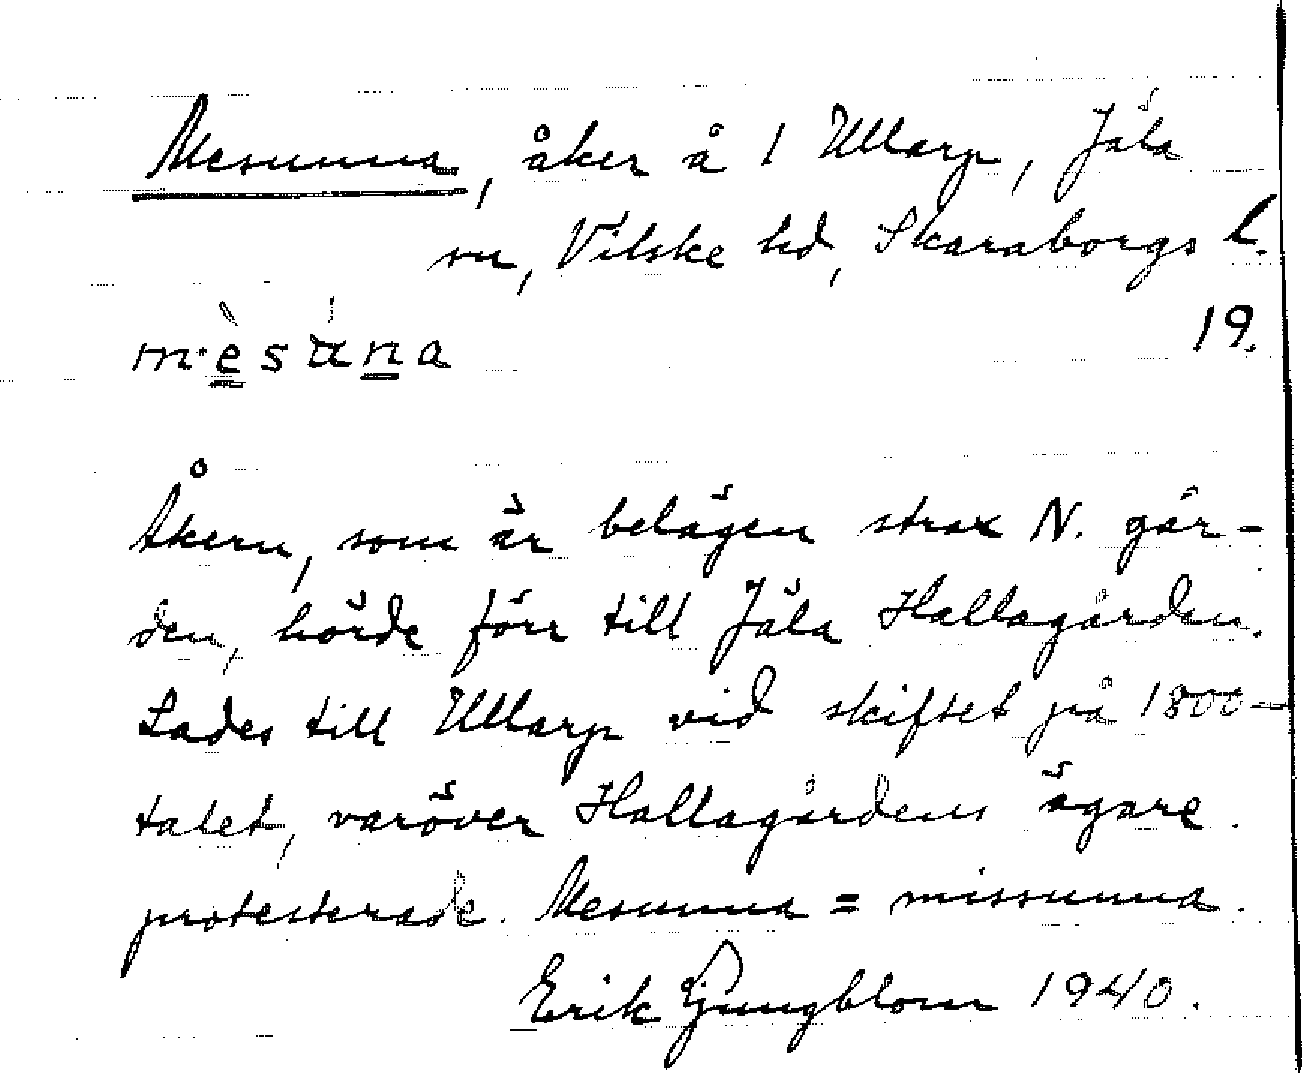 Mesunna, åker å 1 Ullarp, Jäla
sn, Vilske hd, Skaraborgs l.
19.
m·èsu̇na
Åkern, som är belägen strax N. går-
den, hörde förr till Jäla Hallagården.
Lades till Ullarp vid skiftet på 1800-
talet, varöver Hallagårdens ägare
protesterade. Mesunna = missunna.
Erik Ljungblom 1940.